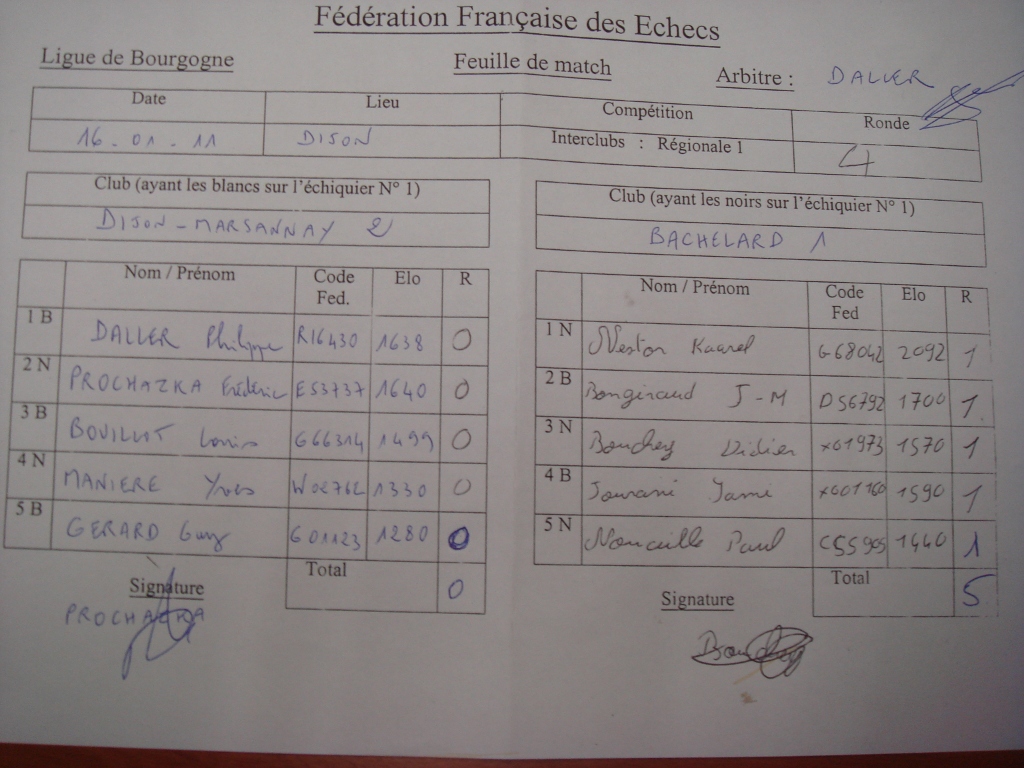 Fédération Française des Echecs
Ligue de Bourgogne Feuille de match Arbitre : DALLER
Date Lieu Compétition Ronde
16 . 01 . 11 DIJON Interclubs : Régionale 1 4
Club (ayant les blancs sur l'échiquier N° 1) Club (ayant les noirs sur l'échiquier N° 1)
DIJON - MARSANNAY 2 BACHELARD 1
Nom / Prénom Code Fed. Elo R Nom / Prénom Code Fed Elo R
1 B DALLER Philippe R16430 1638 0 1 N Nestor Kaarel G68042 2092 1
2 N PROCHAZKA Frédéric E53737 1640 0 2 B Bongiraud J-M D56792 1700 1
3 B BOUILLOT Louis G66314 1499 0 3 N Bouchey Didier X01973 1570 1
4 N MANIERE Yves W02762 1330 0 4 B 1590 1
5 B GERARD Guy G01123 1280 0 5 N Paul C55905 1440 1
Total 0 Total 5
Signature Signature
PROCHAZKA